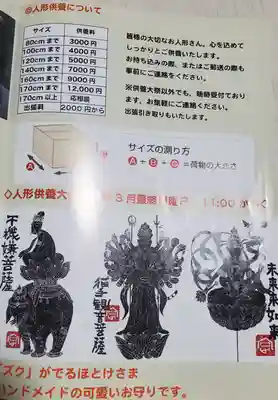 ◎人形供養について
サイズ 供養料
80cmまで 3000円
100cmまで 4000円
120cmまで 5000円
140cmまで 7000円
160cmまで 9000円
170cmまで 12.000円
170cm以上 応相談
出張供養 2000円から
皆様の大切なお人形さん。心を込めて
しっかりとご供養いたします。
お持ち込みの際、またはご郵送の際も
事前にご連絡をください。
※供養大祭以外でも、随時受付ております。
お気軽にご連絡ください。
出張引き取りもいたします。
サイズの測り方
A+B+C=荷物の大きさ
◇人形供養大
3月最終日曜日 11:00から
不機嫌菩薩
千手観音菩薩
未来
ズク」がでるほとけさま
ハンドメイドの可愛いお守りです。